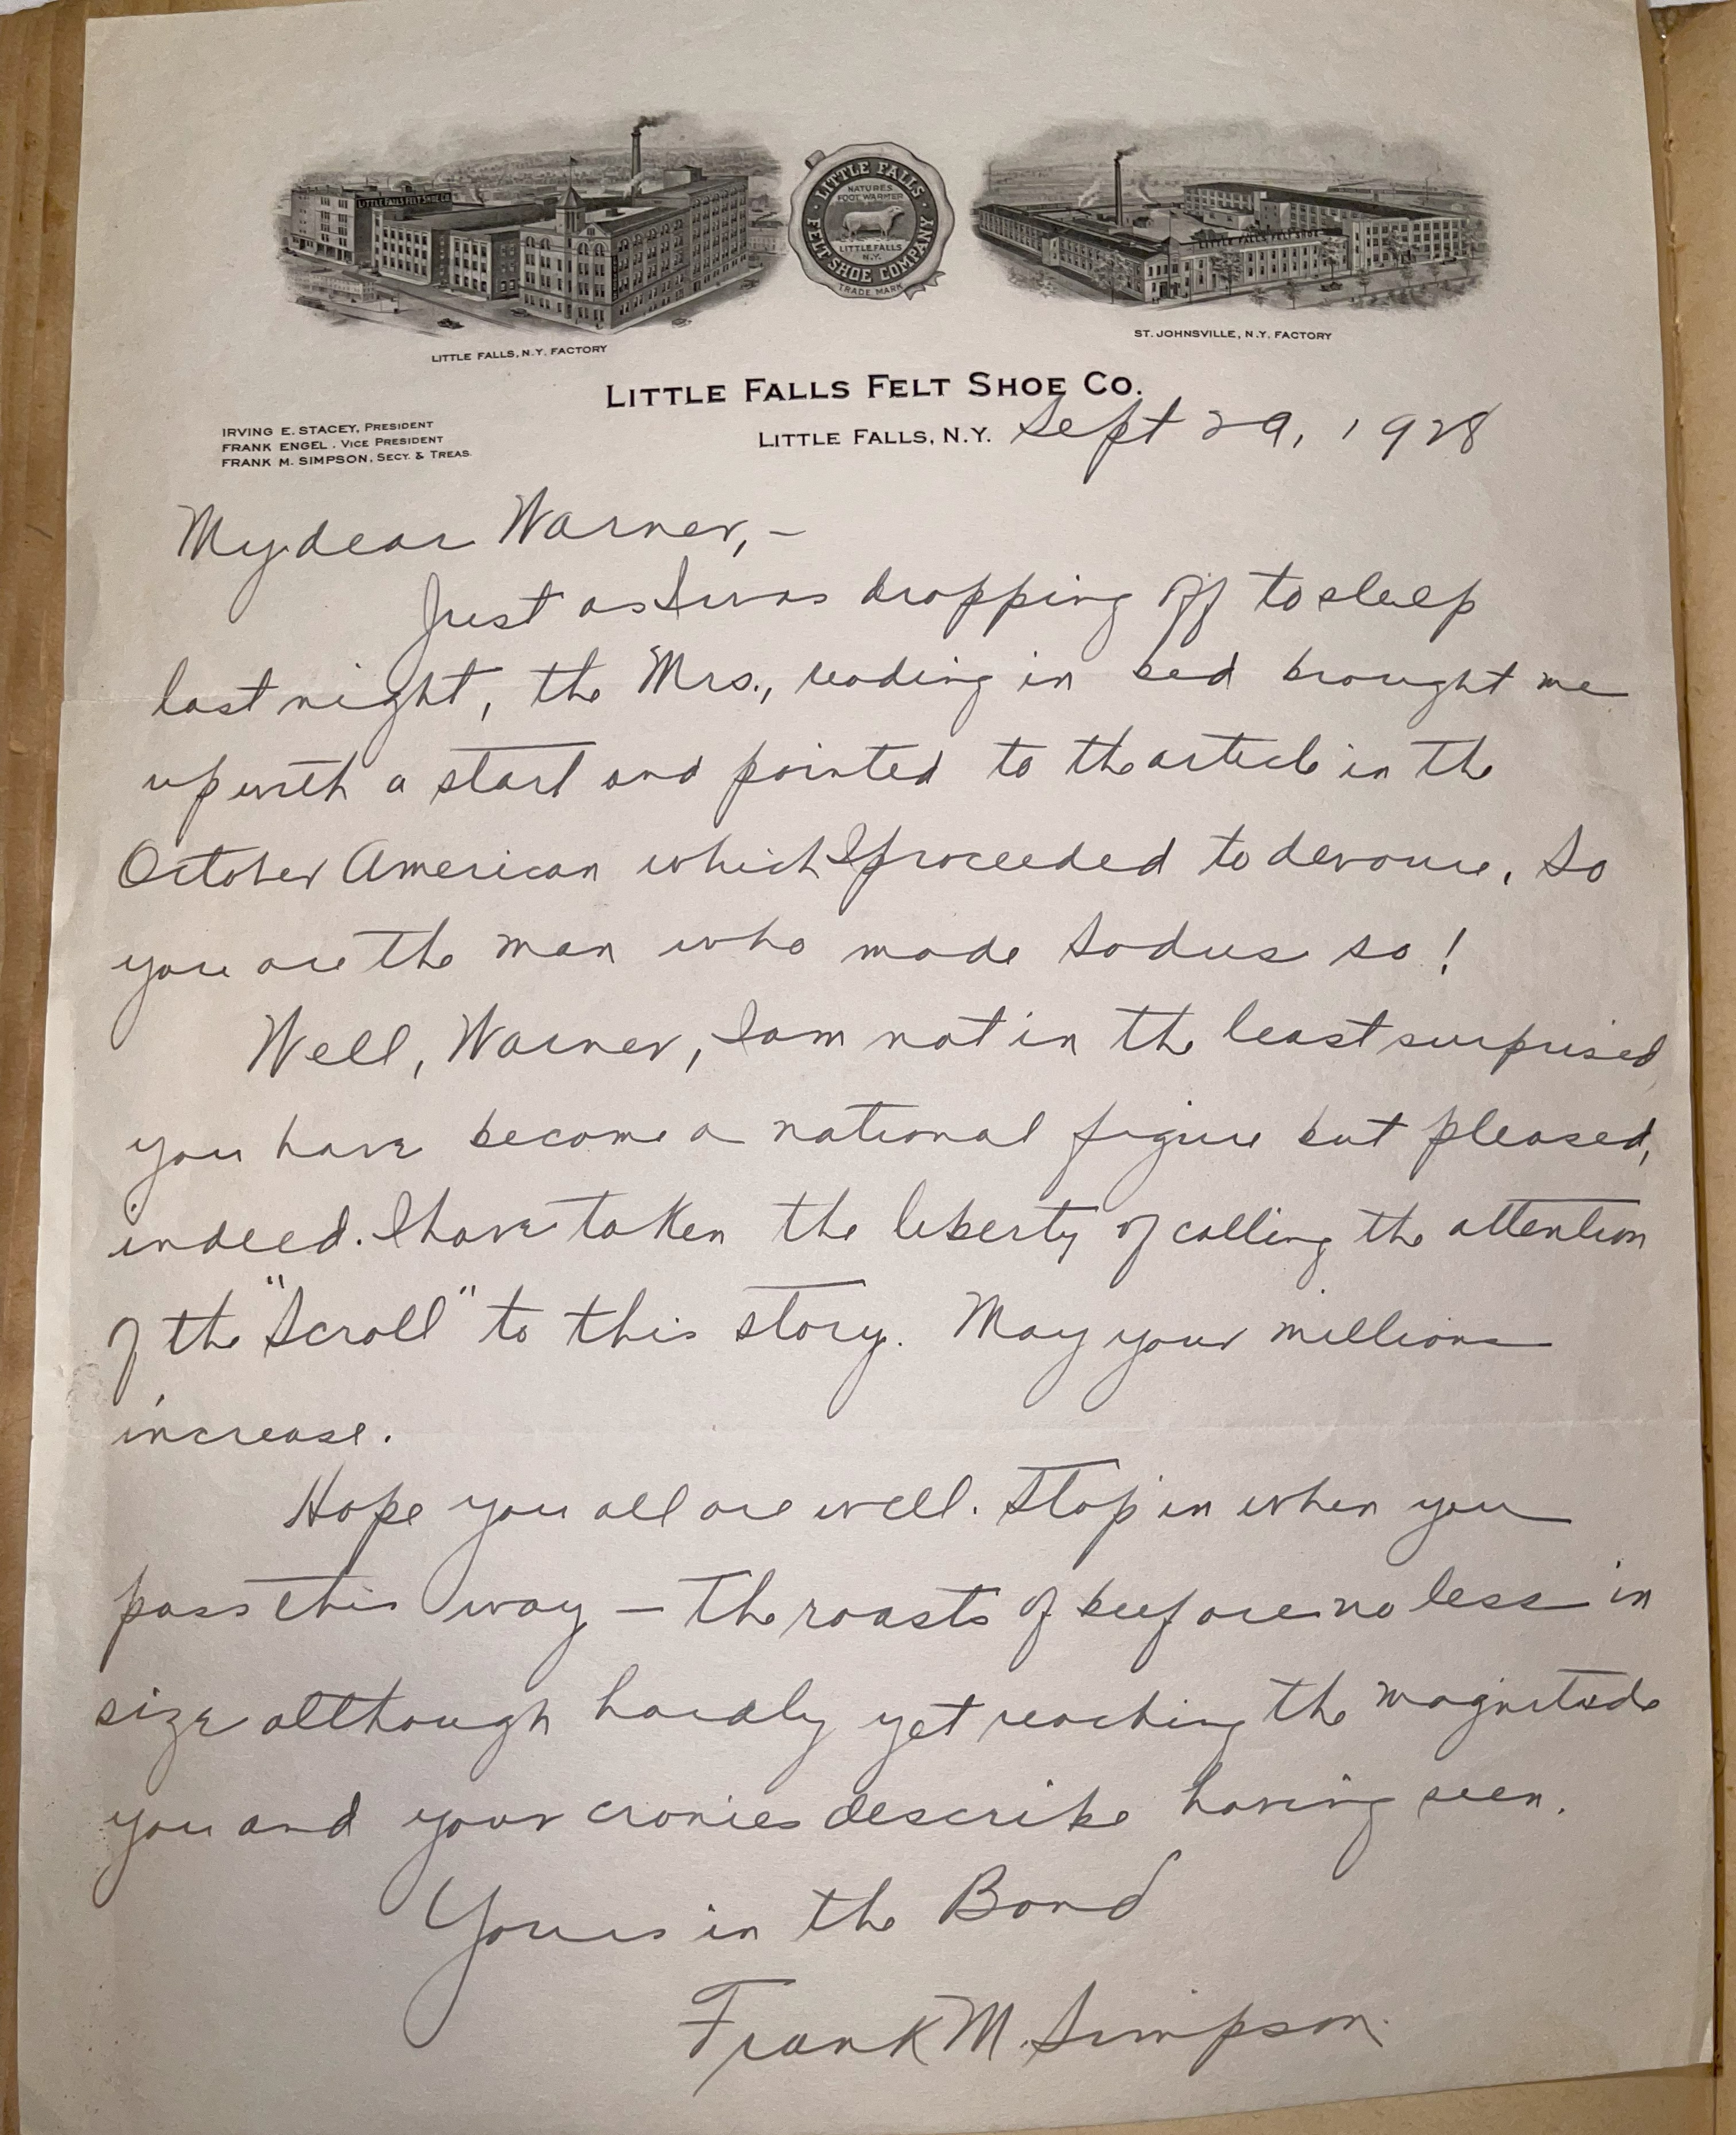 LITTLE FALLS FELT SHOE CO.
LITTLE FALLS
NATURES
FOOT WARMER
LITTLE FALLS
N.Y.
FELT SHOE COMPANY
TRADE MARK
LITTLE FALLS FELT SHOE
LITTLE FALLS, N.Y. FACTORY
ST. JOHNSVILLE, N.Y. FACTORY
LITTLE FALLS FELT SHOE CO.
IRVING E. STACEY, PRESIDENT
FRANK ENGEL. VICE PRESIDENT
FRANK M. SIMPSON, SECY. & TREAS.
LITTLE FALLS, N.Y. Sept 29, 1928
My dear Warner, -
Just as I was dropping off to sleep
last night, the Mrs., reading in bed brought me
up with a start and pointed to the article in the
October American which I proceeded to devour. So
you are the man who made Sodus so!
Well, Warner, I am not in the least surprised
you have become a national figure but pleased,
indeed. I have taken the liberty of calling the attention
of the "Scroll" to this story. May your millions
increase.
Hope you all are well. Stop in when you
pass this way — the roasts of beef are no less in
size although hardly yet reaching the magnitude
you and your cronies describe having seen.
Yours in the Bond
Frank M. Simpson.